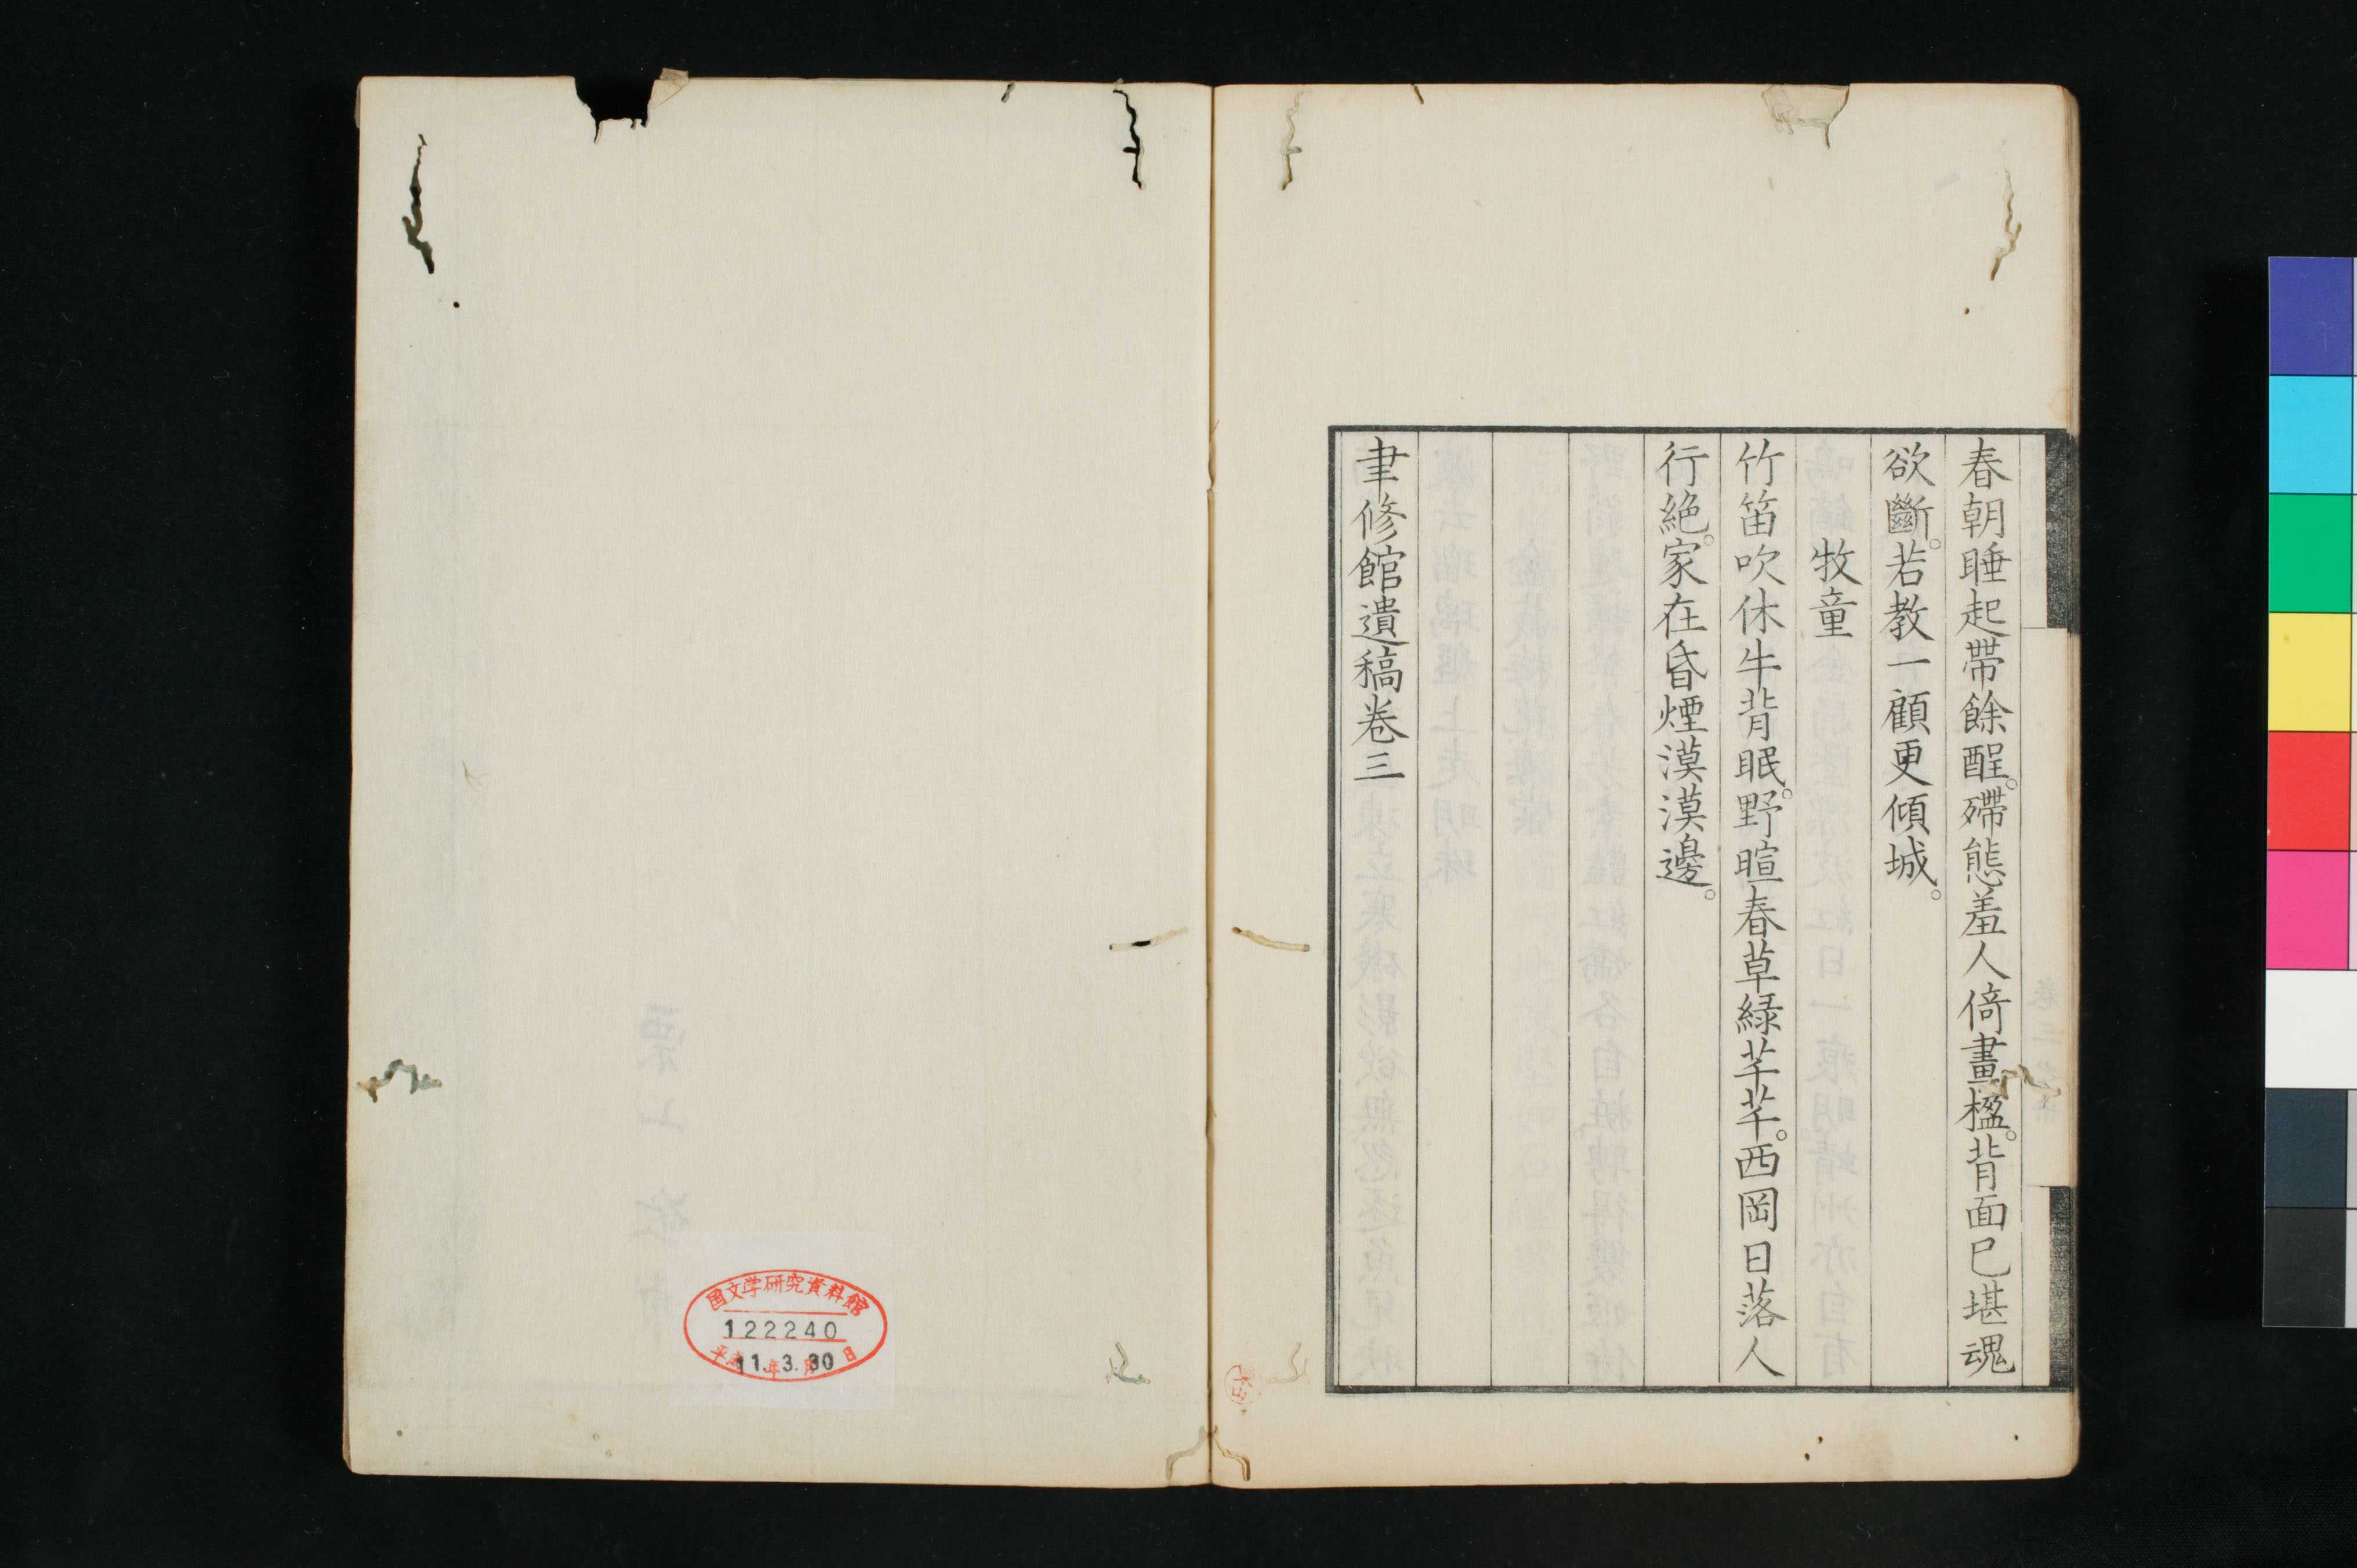 春朝睡起帶餘酲。殢態羞人倚畫楹。背面已堪魂
欲斷。若教一顧更傾城。
牧童
竹笛吹休牛背眠。野暄春草緑芊芊。西岡日落人
行絶。家在昏煙漠漠邊。
聿修館遺稿卷三
国文学研究資料館
122240
平成11年3月30日